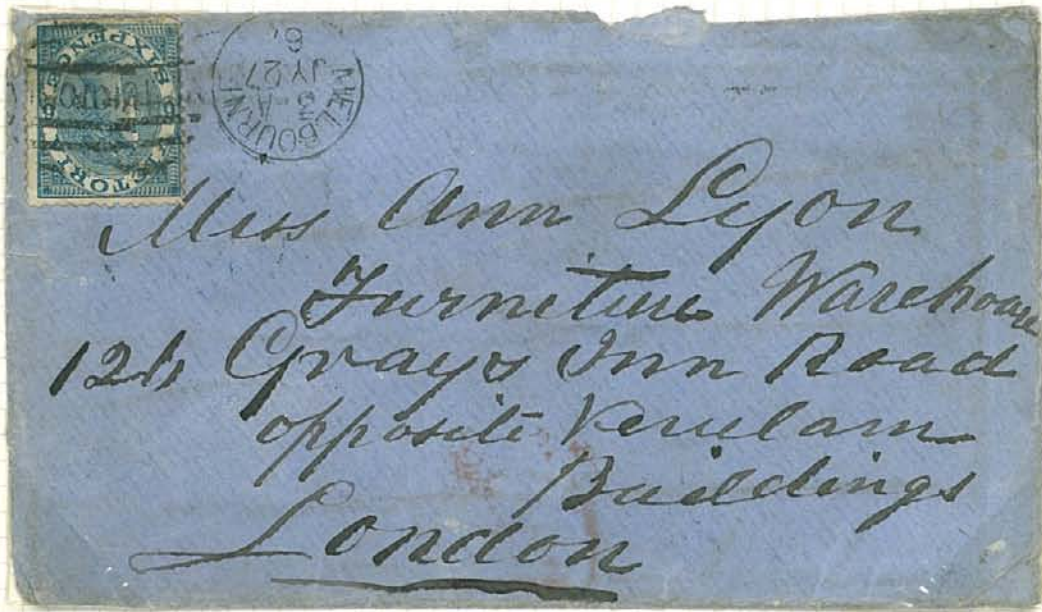 SIXPENCE
VICTORIA
MELBOURNE
3
AN
JY 27
6
Miss Ann Lyon
Furniture Warehouse
Grays Inn Road
opposite Verulam
Buildings
London